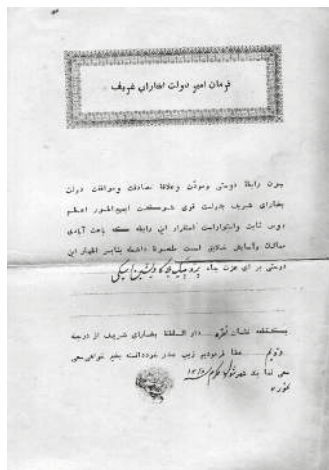 فرمان امیر دولت بخارای شریف
چون رابطهٔ دوستی ومودت وعلاقهٔ مصادقت وموافقت دولت
بخارای شریف بدولت قوی شوکت ایمپراطور اعظم
روس ثابت واستوار است استقرار این رابطه که باعث آبادی
ممالک وآسایش خلایق است ملحوظ داشته بنابر اظهار این
دوستی برای عزت جاه
یکقطعه نشان نقره دار السلطنهٔ بخارای شریف از درجهٔ
عطا فرمودیم زیب صدر خود دانسته بخیر خواهی سعی
می نماید